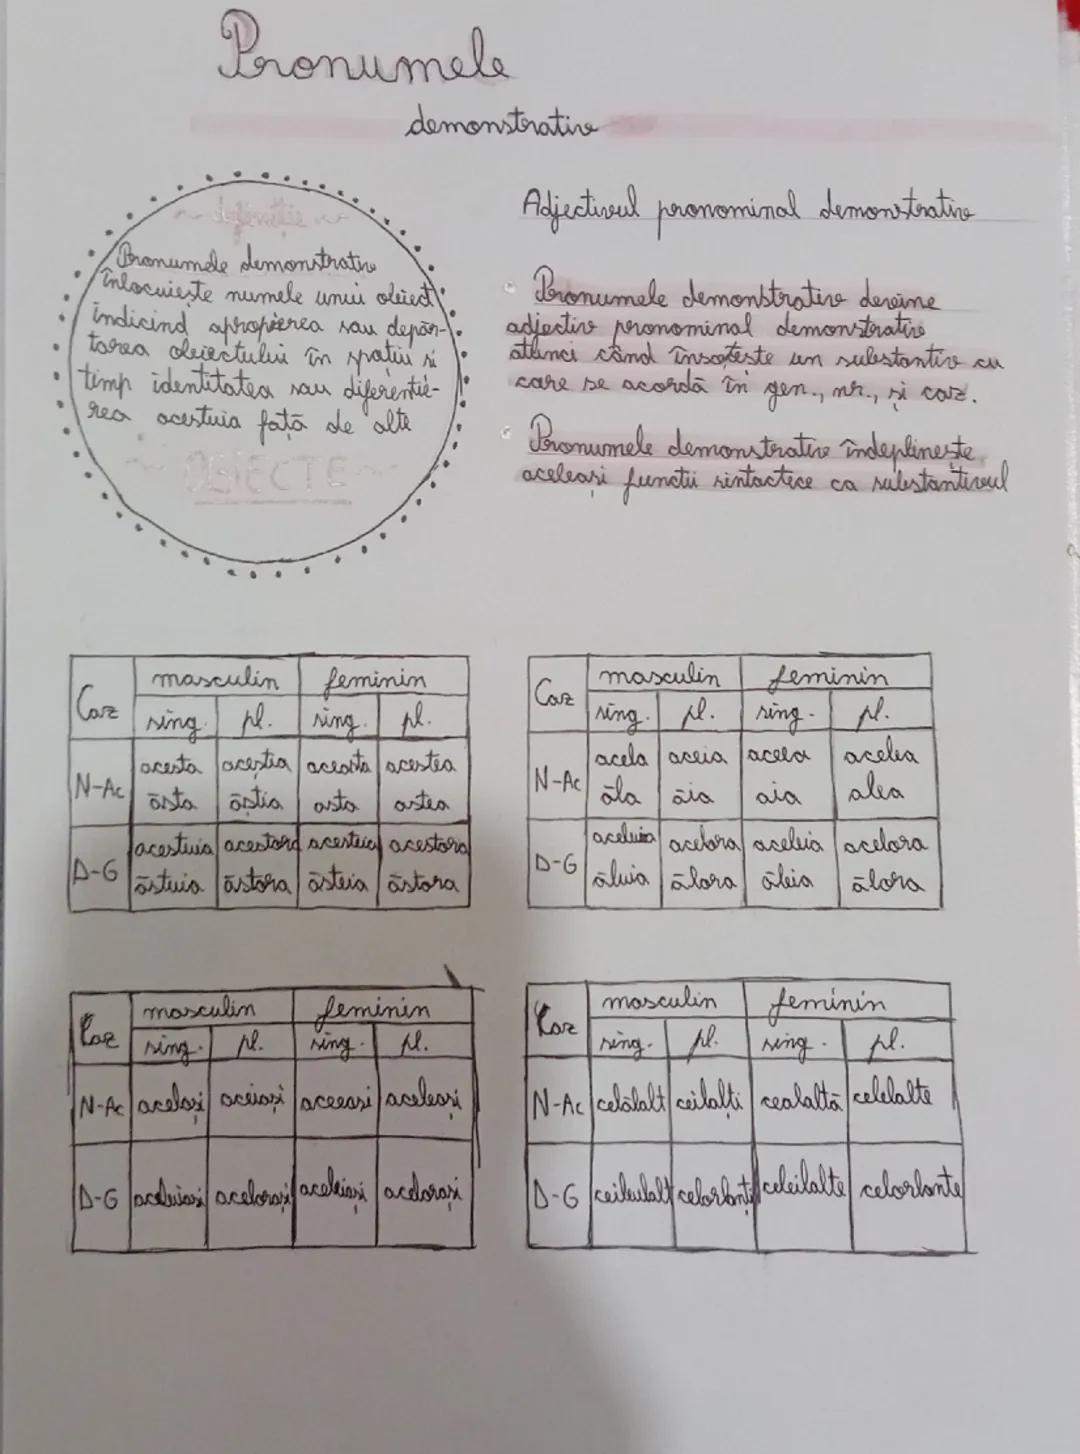 Pronumele
demonstrativ
~ definiție ~
Pronumele demonstrativ
înlocuiește numele unui obiect
indicînd apropierea sau depăr-
tarea obiectului în spațiu si
timp identitatea sau diferentie-
rea acestuia față de alte
~ OBIECTE ~
Adjectivul pronominal demonstrativ
Pronumele demonstrativ devine
adjectiv pronominal demonstrativ
atunci când însoțeste un substantiv cu
care se acordă în gen., nr., și caz.
Pronumele demonstrativ îndeplinește
aceleași funcții sintactice ca substantivul
Caz masculin feminin
sing. pl. sing. pl.
N-Ac acesta aceștia aceasta acestea
ăsta ăștia asta astea
D-G acestuia acestora acesteia acestora
ăstuia ăstora ăsteia ăstora
Caz masculin feminin
sing. pl. sing. pl.
N-Ac acela aceia aceea acelea
ăla ăia aia alea
D-G aceluia acelora aceleia acelora
ăluia ălora ăleia ălora
Caz masculin feminin
sing. pl. sing. pl.
N-Ac același aceiași aceeasi aceleași
D-G aceluiași acelorași aceleiași acelorași
Caz masculin feminin
sing. pl. sing. pl.
N-Ac celălalt ceilalți cealaltă celelalte
D-G celeilalte